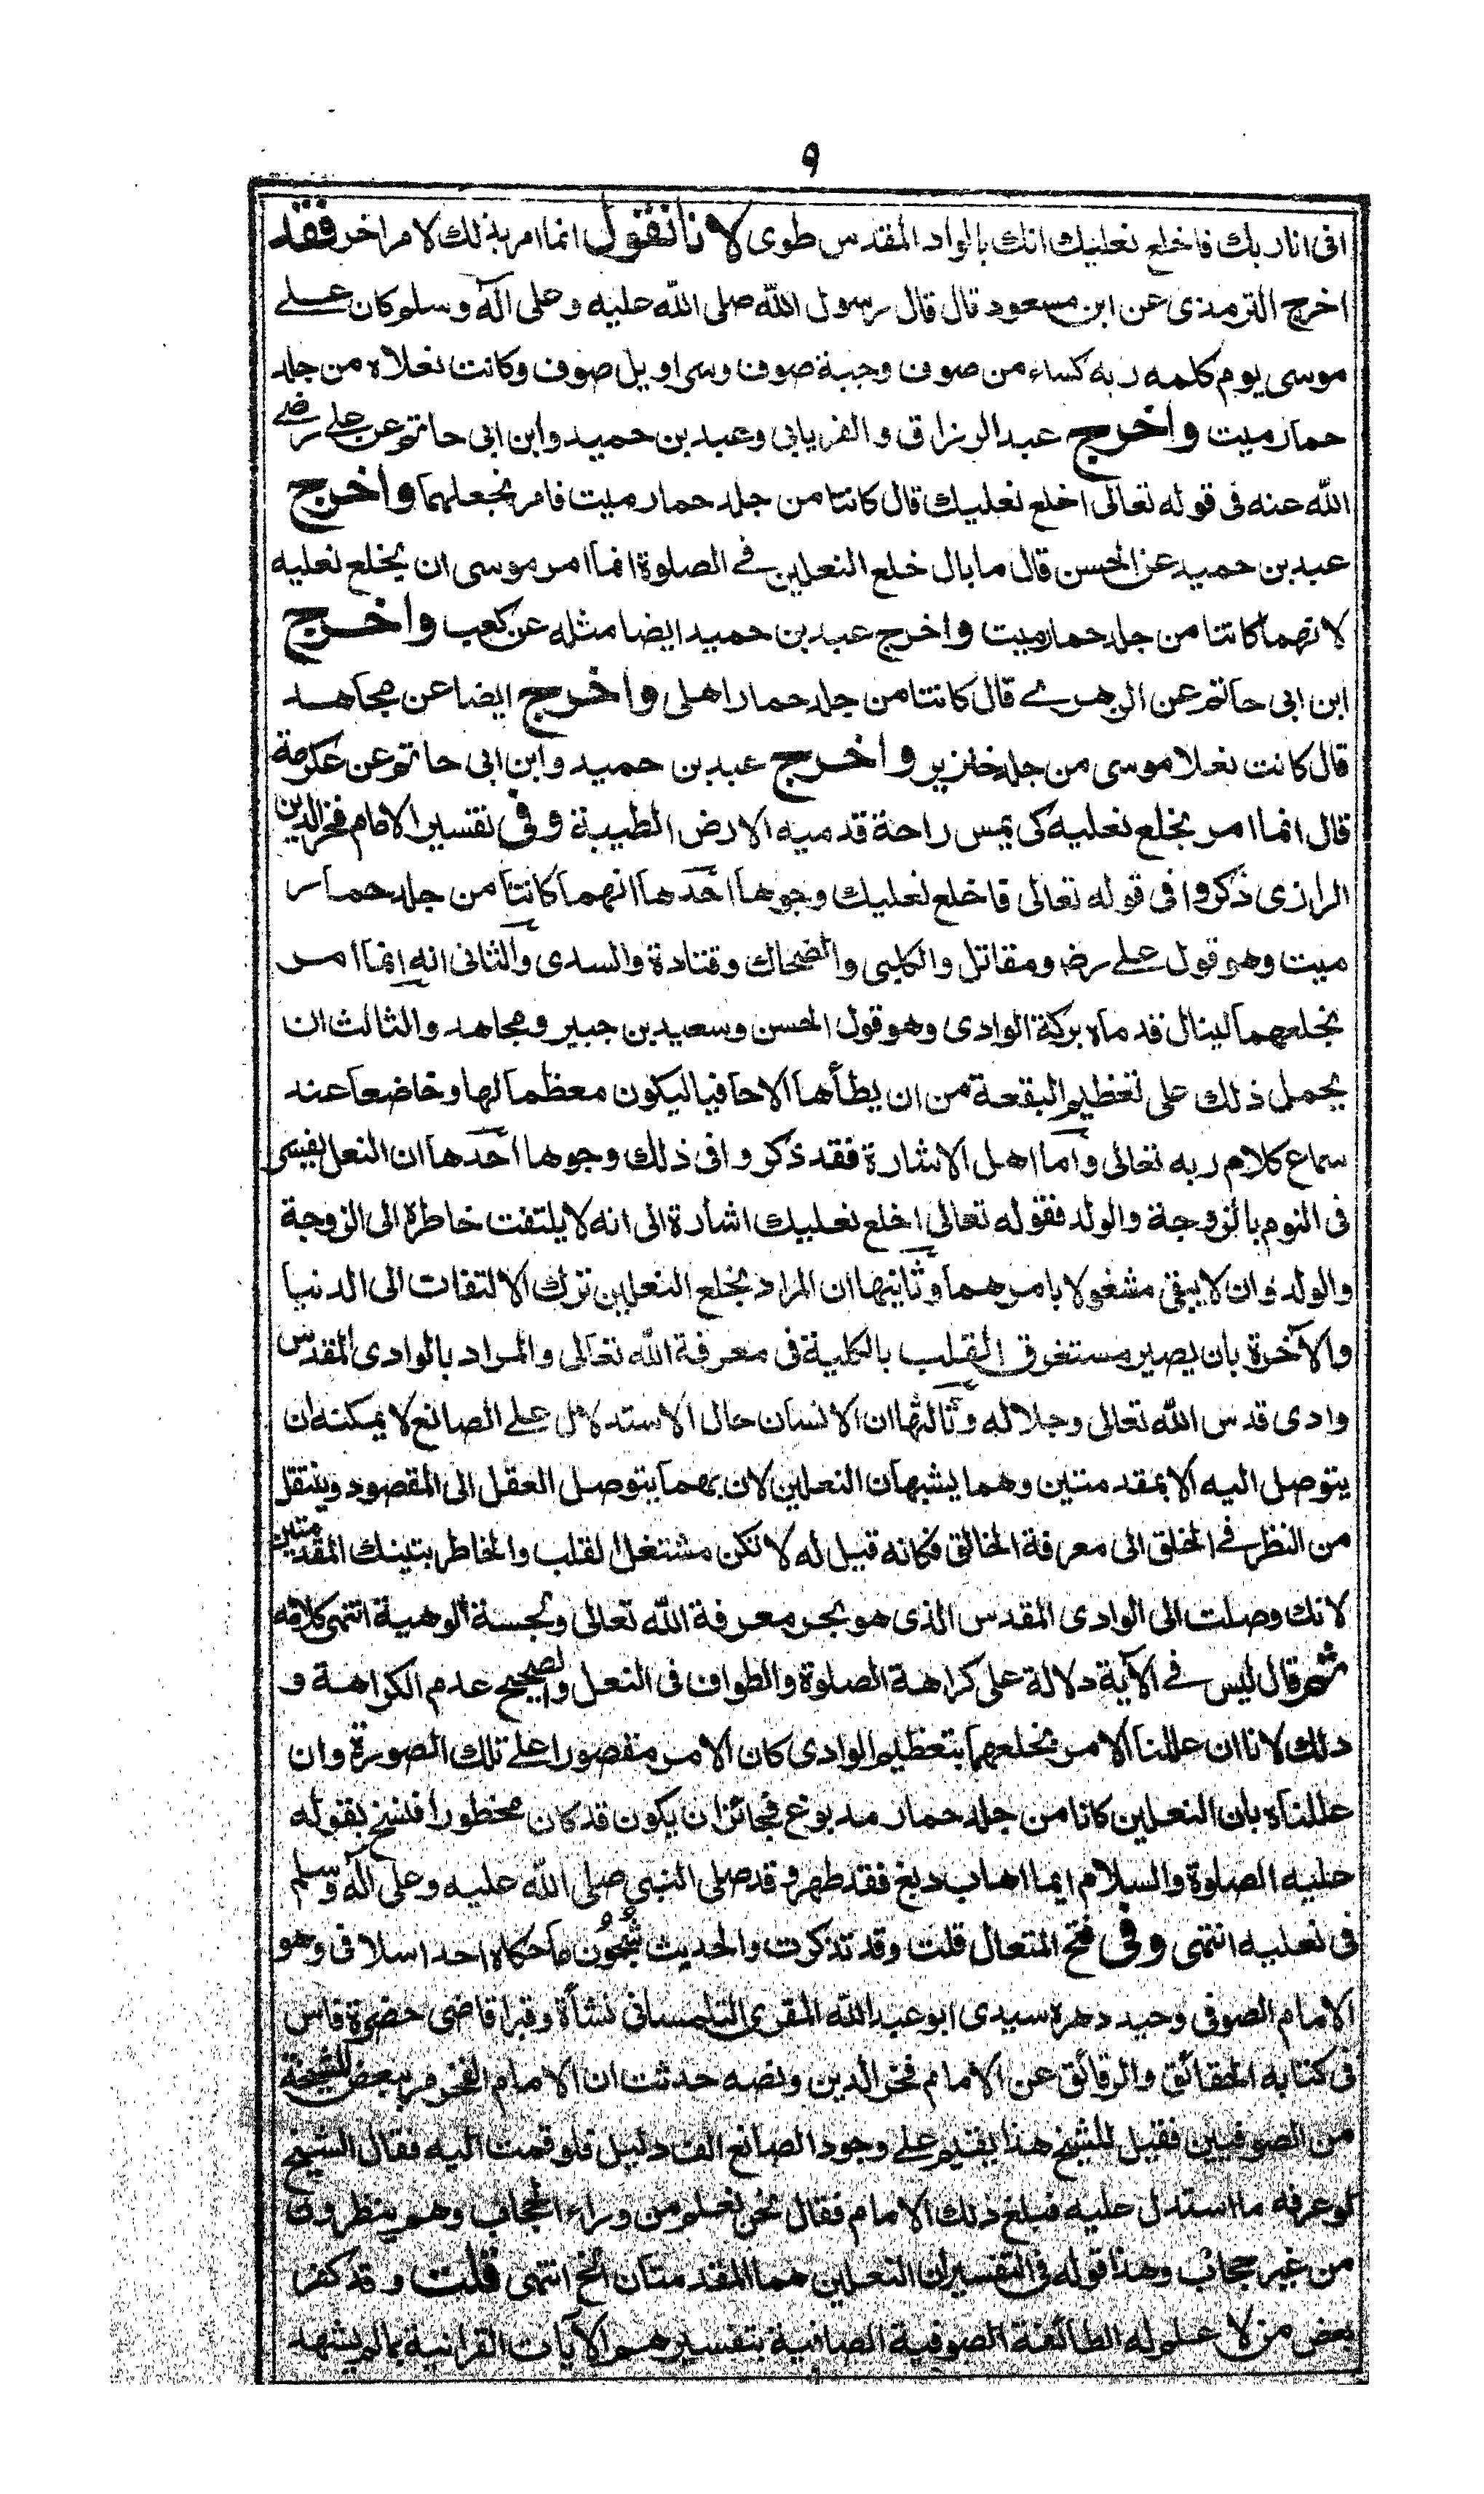 ٩
انی انا ربك فاخلع نعلیك انك بالواد المقدس طوی لا نا نقول انما امر بذلك لامر اخر فقد
اخرج الترمذی عن ابن مسعود قال قال رسول الله صلی الله علیه وعلی آله وسلم کان علے
موسی یوم کلمه ربه کساء من صوف وجبة صوف وسراویل صوف وکانت نعلاه من جلد
حمار میت واخرج عبد الرزاق والفریابی وعبد بن حمید وابن ابی حاتم عن علے رضے
الله عنه فی قوله تعالی اخلع نعلیك قال کانتا من جلد حمار میت فامر بخعلهما واخرج
عبد بن حمید عن الحسن قال ما بال خلع النعلین فے الصلوة انما امر موسی ان یخلع نعلیه
لانهما کانتا من جلد حمار میت واخرج عبد بن حمید ایضا مثله عن کعب واخرج
ابن ابی حاتم عن الزهرے قال کانتا من جلد حمار اهلی واخرج ایضا عن مجاهد
قال کانت نعلا موسی من جلد خنزیر واخرج عبد بن حمید وابن ابی حاتم عن عکرمة
قال انما امر بخلع نعلیه کی یمس راحة قدمیه الارض الطیبة وفی تفسیر الامام فخر الدین
الرازی ذکروا فی قوله تعالی فاخلع نعلیك وجوها احدها انهما کانتا من جلد حمار
میت وهو قول علے رض ومقاتل والکلبی والضحاك وقتادة والسدی والثانی انه انما امر
بخلعهما لینال قدماه برکة الوادی وهو قول الحسن وسعید بن جبیر ومجاهد والثالث ان
یحمل ذلك علی تعظیم البقعة من ان یطأها الا حافیا لیکون معظما لها وخاضعا عند
سماع کلام ربه تعالی واما اهل الاشارة فقد ذکروا فی ذلك وجوها احدها ان النعل یفسر
فی النوم بالزوجة والولد فقوله تعالی اخلع نعلیك اشارة الی انه لا یلتفت خاطره الی الزوجة
والولد وان لا یبقی مشغولا بامرهما وثانیها ان المراد بخلع النعلین ترك الالتفات الی الدنیا
والآخرة بان یصیر مستغرق القلب بالکلیة فی معرفة الله تعالی والمراد بالوادی المقدس
وادی قدس الله تعالی وجلاله وثالثها ان الانسان حال الاستدلال علے الصانع لا یمکنه ان
یتوصل الیه الا بمقدمتین وهما یشبهان النعلین لان بهما یتوصل العقل الی المقصود وینتقل
من النظر فے الخلق الی معرفة الخالق فکانه قیل له لا تکن مشتغل القلب والخاطر بتینك المقدمتین
لانك وصلت الی الوادی المقدس الذی هو بحر معرفة الله تعالی ولجسة الوهیة انتهی کلامه
ثم قال لیس فے الآیة دلالة علی کراهة الصلوة والطواف فی النعل والصحیح عدم الکراهة و
ذلك لانا ان عللنا الامر بخلعهما بتعظیم الوادی کان الامر مقصورا علے تلك الصورة وان
عللناه بان النعلین کانا من جلد حمار مدبوغ فجائز ان یکون قد کان محظورا فنسخ بقوله
علیه الصلوة والسلام ایما اهاب دبغ فقد طهر وقد صلی النبی صلی الله علیه وعلی آله وسلم
فی نعلیه انتهی وفی فتح المتعال قلت وقد تذکرت والحدیث شُجُون ما حکاه احد اسلافی وهو
الامام الصوفی وحید دهره سیدی ابو عبد الله المقری التلمسانی نشأة وقبرا قاضی حضرة فاس
فی کتابه الحقائق والرقائق عن الامام فخر الدین ونصه حدثت ان الامام الفخر مر ببعض المشیخة
من الصوفیین فقیل للشیخ هذا یقیم علے وجود الصانع الف دلیل فلو قمت الیه فقال الشیخ
لو عرفه ما استدل علیه فبلغ ذلك الامام فقال نحن نعلم من وراء الحجاب وهم ینظرون
من غیر حجاب وهذا قوله فی التفسیر ان النعلین هما المقدمتان الخ انتهی قلت وقد کفر
بعض من لا علم له الطائفة الصوفیة الصافیة بتفسیرهم الآیات القرانیة بما لم یشهد